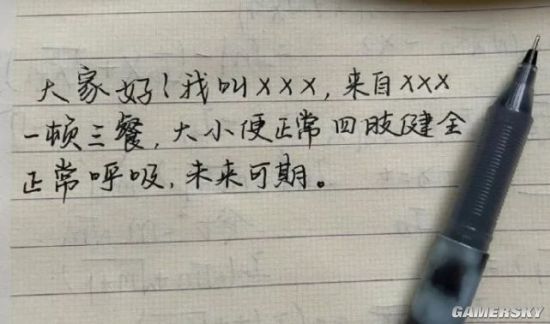 大家好！我叫xxx，来自xxx
一顿三餐，大小便正常四肢健全
正常呼吸，未来可期。
GAMERSKY